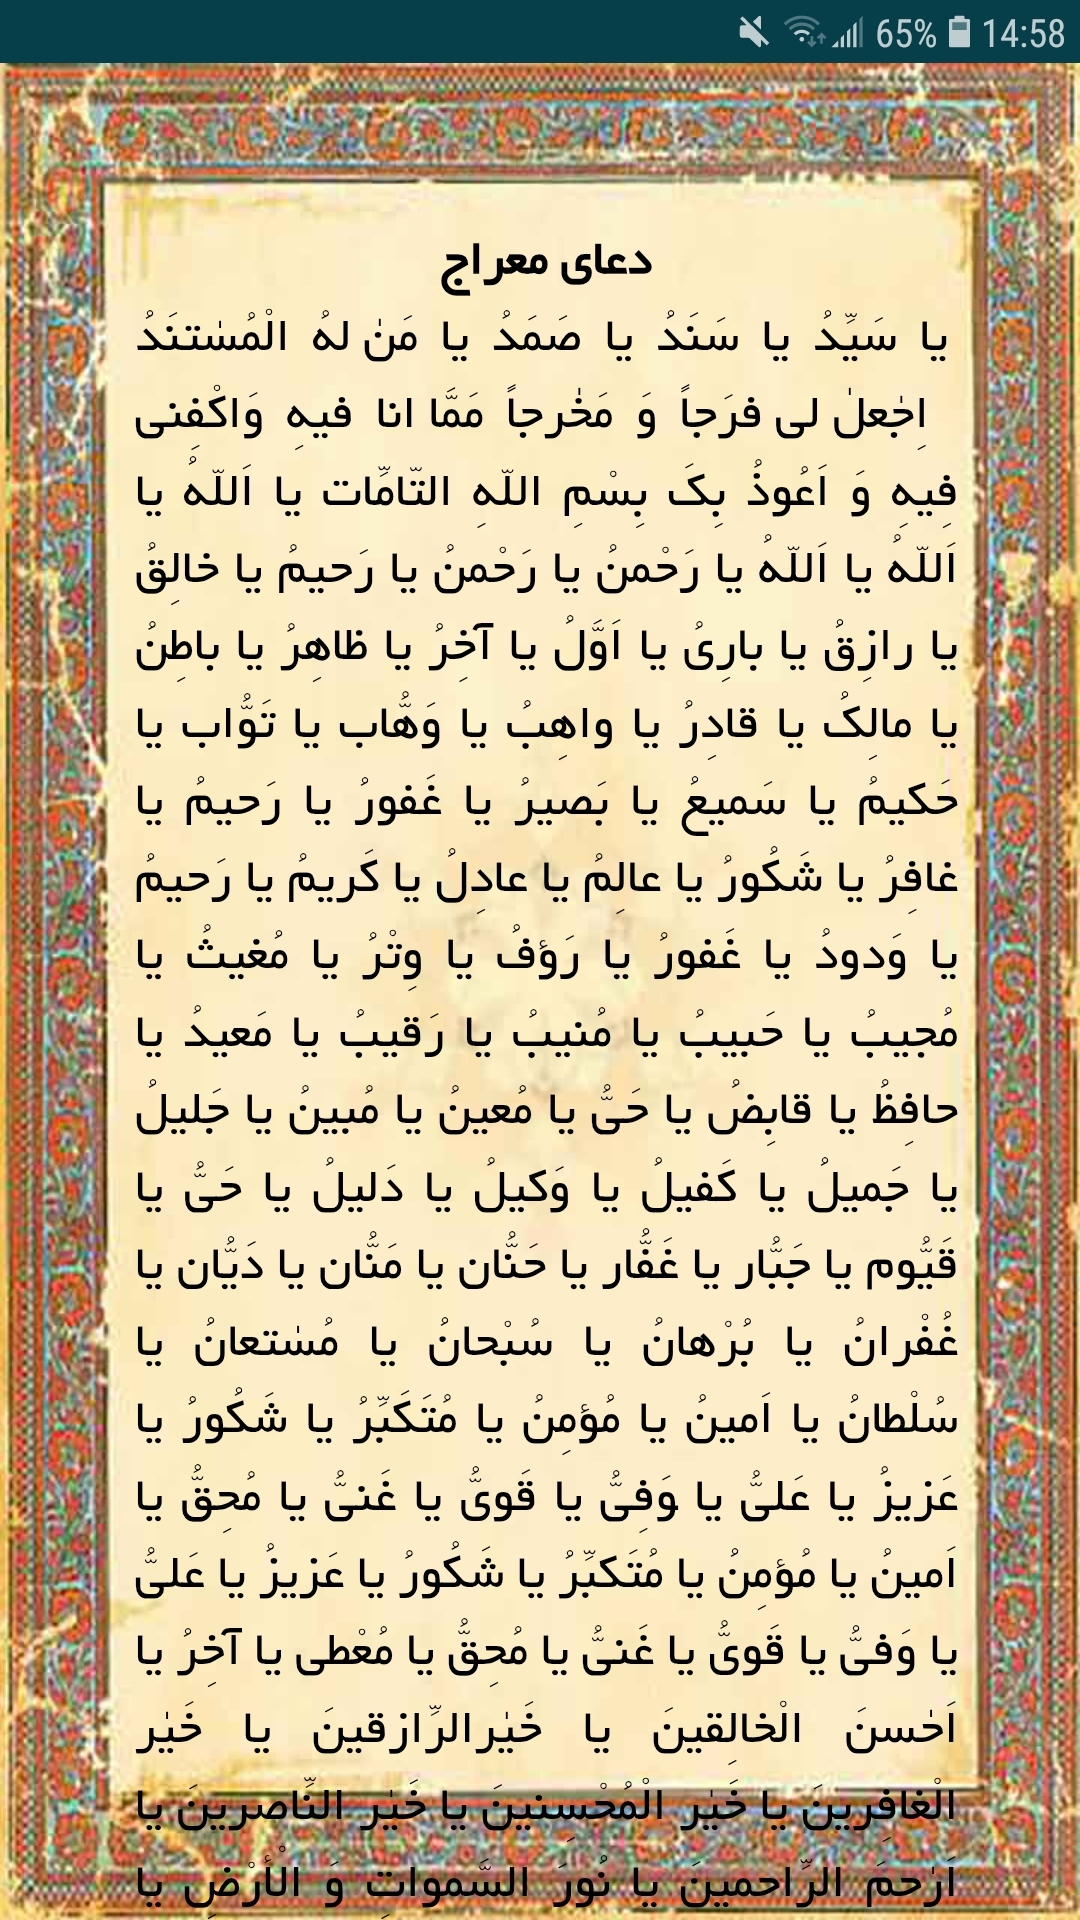 65% 14:58
دعای معراج
یا سَیِّدُ یا سَنَدُ یا صَمَدُ یا مَنْ لهُ الْمُسْتنَدُ
اِجْعلْ لی فرَجاً وَ مَخْرجاً مَمَّا انا فیهِ وَاکْفِنی
فِیهِ وَ اَعُوذُ بِکَ بِسْمِ اللّهِ التّامِّات یا اَللّهُ یا
اَللّهُ یا اَللّهُ یا رَحْمنُ یا رَحْمنُ یا رَحیمُ یا خالِقُ
یا رازِقُ یا بارِیُ یا اَوَّلُ یا آخِرُ یا ظاهِرُ یا باطِنُ
یا مالِکُ یا قادِرُ یا واهِبُ یا وَهُّاب یا تَوُّاب یا
حَکیمُ یا سَمیعُ یا بَصیرُ یا غَفورُ یا رَحیمُ یا
غافِرُ یا شَکُورُ یا عالِمُ یا عادِلُ یا کَریمُ یا رَحیمُ
یا وَدودُ یا غَفورُ یا رَؤفُ یا وِتْرُ یا مُغیثُ یا
مُجیبُ یا حَبیبُ یا مُنیبُ یا رَقیبُ یا مَعیدُ یا
حافِظُ یا قابِضُ یا حَیُّ یا مُعینُ یا مُبینُ یا جَلیلُ
یا جَمیلُ یا کَفیلُ یا وَکیلُ یا دَلیلُ یا حَیُّ یا
قَیُّوم یا جَبُّار یا غَفُّار یا حَنُّان یا مَنُّان یا دَیُّان یا
غُفْرانُ یا بُرْهانُ یا سُبْحانُ یا مُسْتعانُ یا
سُلْطانُ یا اَمینُ یا مُؤمِنُ یا مُتَکَبِّرُ یا شَکُورُ یا
عَزیزُ یا عَلیُّ یا وَفِیُّ یا قَویُّ یا غَنیُّ یا مُحِقُّ یا
اَمینُ یا مُؤمِنُ یا مُتَکبِّرُ یا شَکُورُ یا عَزیزُ یا عَلیُّ
یا وَفیُّ یا قَویُّ یا غَنیُّ یا مُحِقُّ یا مُعْطی یا آخِرُ یا
اَحْسنَ الْخالِقینَ یا خَیْرالرِّازقینَ یا خَیْر
الْغافِرینَ یا خَیْر الْمُحْسِنینَ یا خَیْر النِّاصرینَ یا
اَرْحمَ الرِّاحمینَ یا نُورَ السَّمواتِ وَ الْأَرْضِ یا